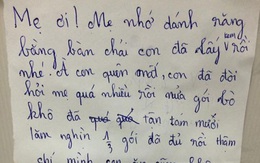 Mẹ ơi! Mẹ nhớ đánh răng
bằng bàn chải con đã lấy kem rồi
nhé. À con quên mất, con đã đòi
hỏi mẹ quá nhiều rồi nửa gói bò
khô đã tan tam mươi
lăm nghìn 1/3 gói đã đủ rồi thâm
chí mình con ăn